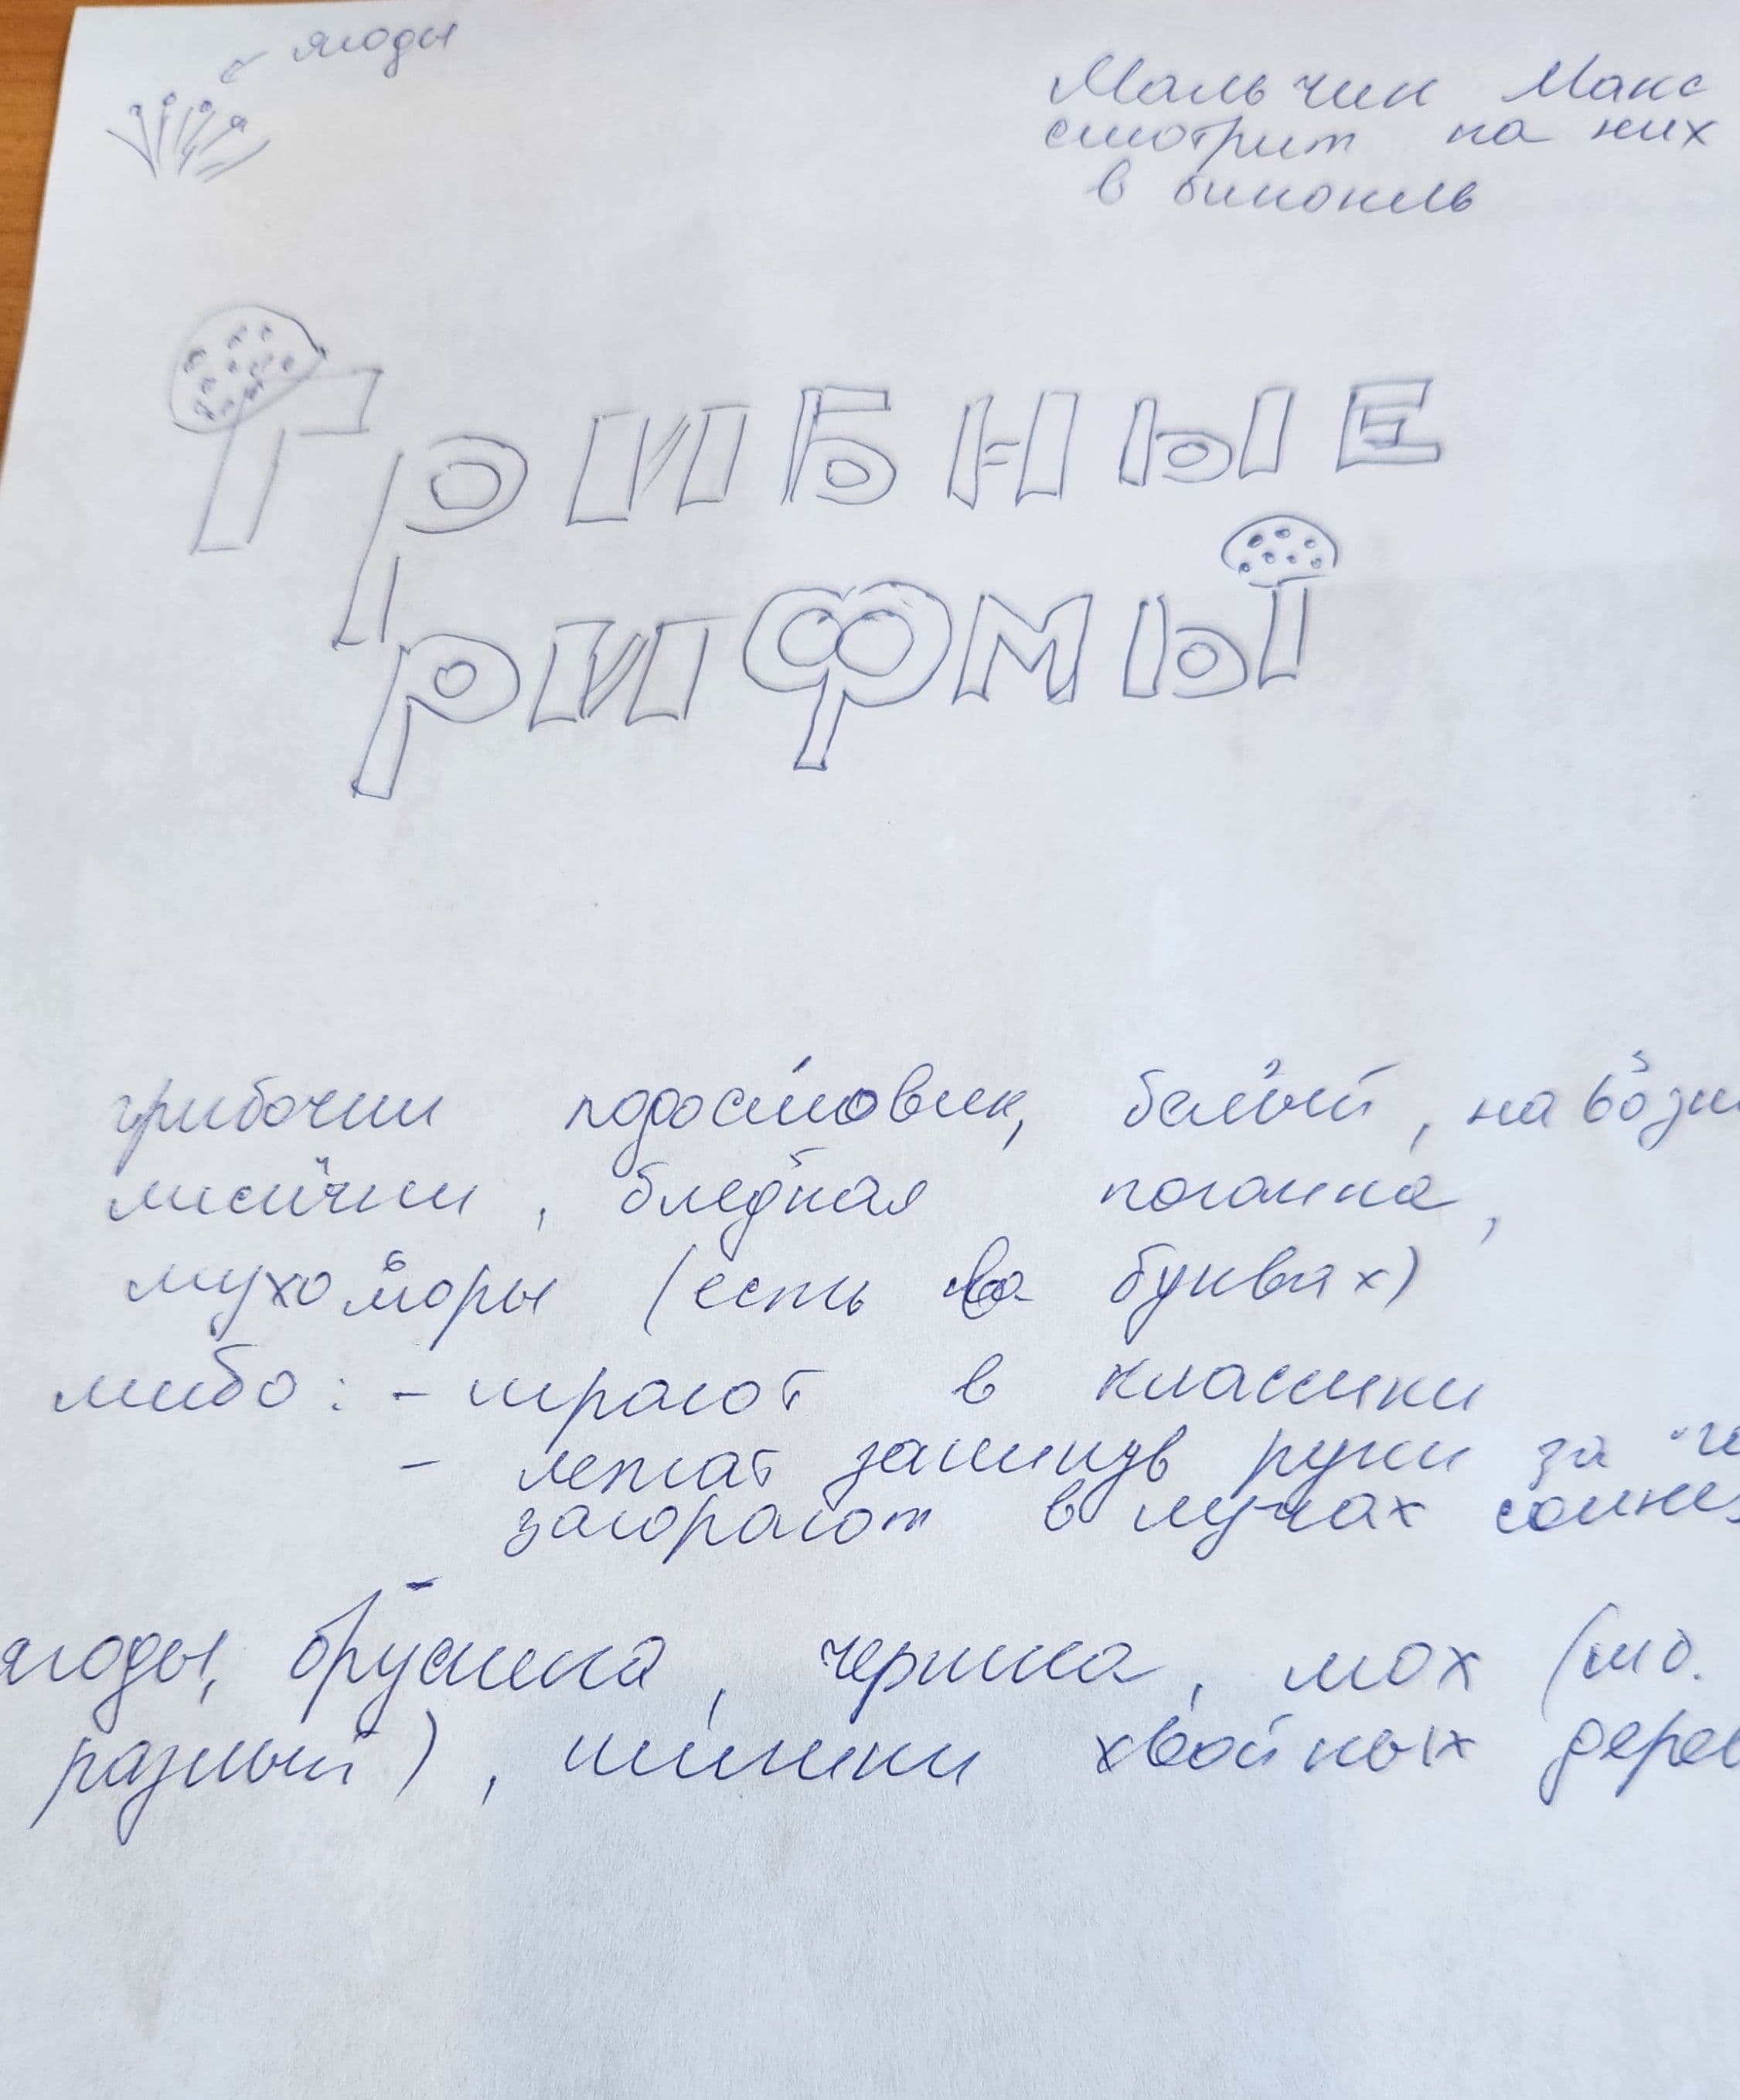 ягоды
Мальчик Макс
смотрит на них
в бинокль
Грибные
рифмы
грибочки подосиновик, белый,
лисички, бледная поганка,
мухоморы (есть в буквах)
либо: - играют в классики
- лежат закинув руки за
загорают в лучах солнеч
ягоды, брусника, черника, мох (мб.
разный), шишки хвойных дерев